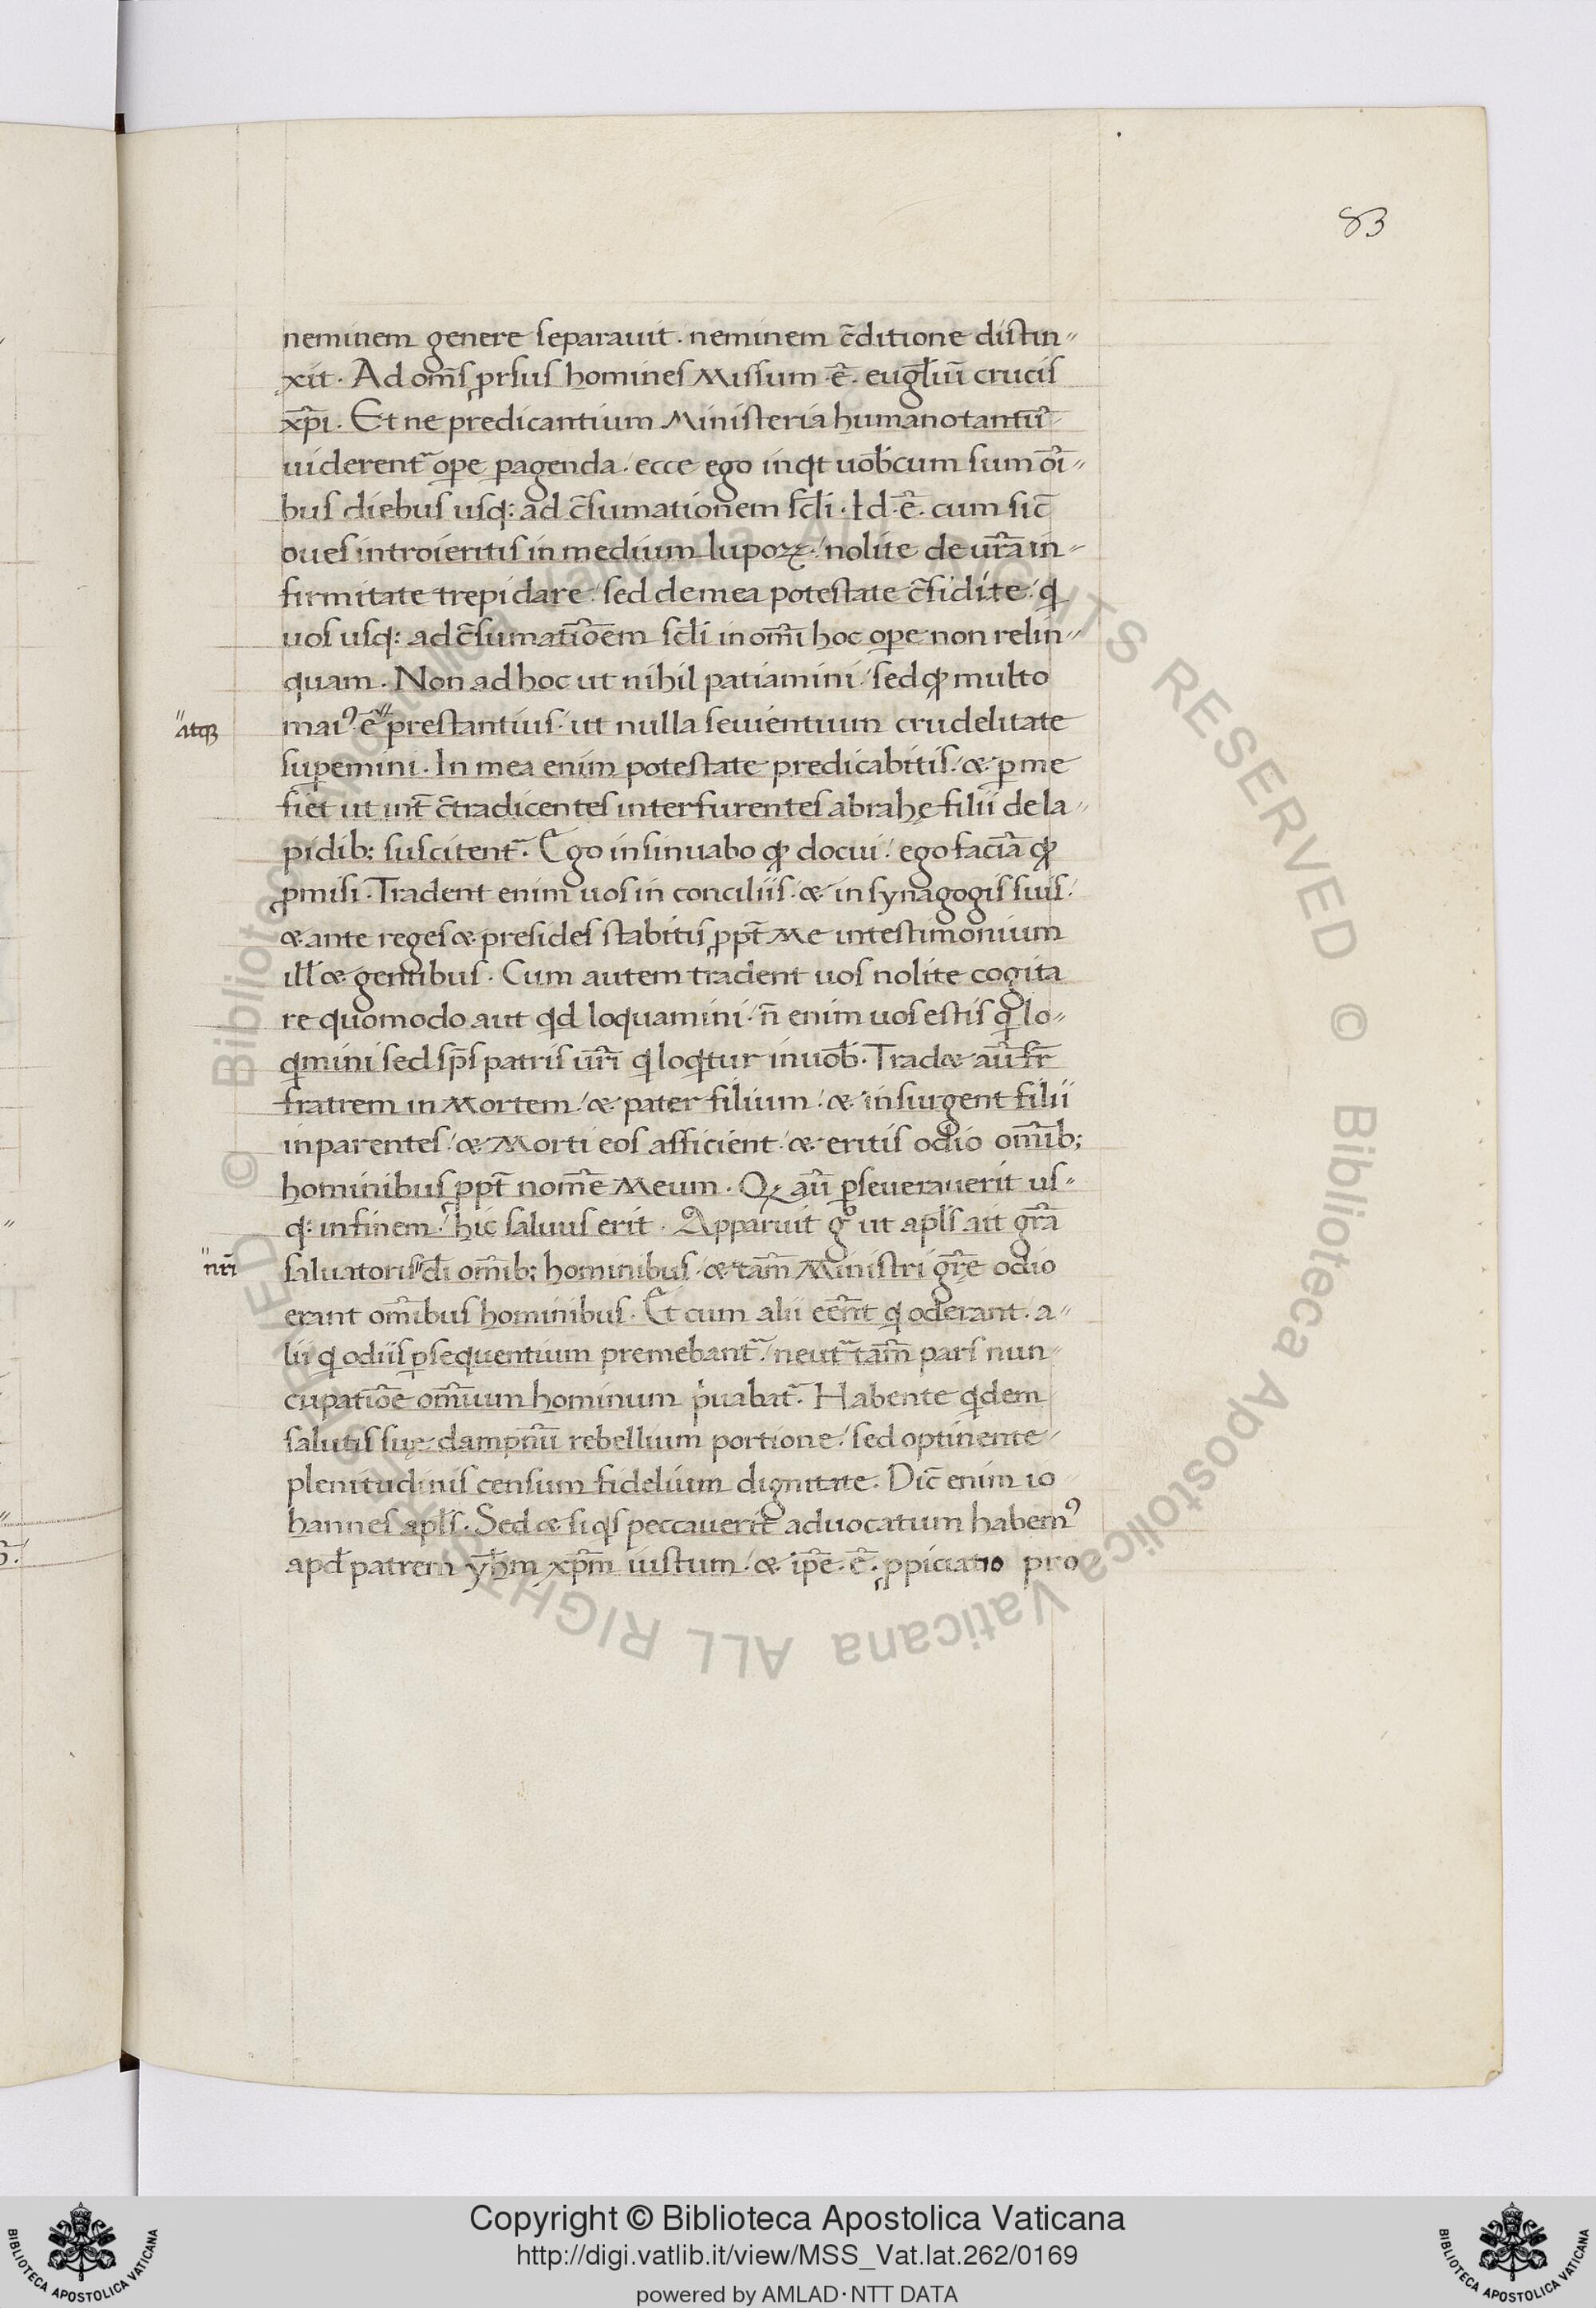 83
neminem genere separauit · neminem c̄ditione distin〃
xit · Ad om̄s ꝓrsus homines missum ·ē· eugl̄iū crucis
xp̄i · Et ne predicantium ministeria humano tantū
uiderent᷑ ope ꝑagenda · ecce ego inqt uob̄cum sum oī〃
bus diebus usq: ad c̄sumationem scl̄i · Id ·ē· cum sic̄
oues introieritis in medium lupoꝝ · nolite de ur̄a in〃
firmitate trepidare · sed de mea potestate c̄fidite · q̇
uos usq: ad c̄sumatiōem scl̄i in om̄i hoc ope non relin〃
quam · Non ad hoc ut nihil patiamini · sed qꝫ multo
〃atqꝫ
maiꝰ ·ē· 〃prestantius · ut nulla seuientium crudelitate
suꝑemini · In mea enim potestate predicabitis · & ꝑ me
fiet ut int̄ c̄tradicentes inter furentes abrahę filii de la〃
pidib; suscitent᷑ · Ego insinuabo qꝫ docui · ego faciā qꝫ
ꝓmisi · Tradent enim uos in conciliis · & in synagogis suis ·
& ante reges & presides stabitis ꝓpt̄ me in testimonium
ill̄ & gentibus · Cum autem tradent uos nolite cogita
re quomodo aut qd loquamini · n̄ enim uos estis q̇ lo〃
qmini sed sp̄s patris ur̄i q̇ loqtur in uob̄ · Trad& aū fr̄
fratrem in mortem · & pater filium · & insurgent filii
in parentes · & morti eos afficient · & eritis odio om̄ib;
hominibus ꝓpt̄ nom̄e meum · Qi aū ꝑseuerauerit us〃
q: in finem · hic saluus erit · Apparuit gͦ ut apl̄s ait gr̄a
〃nr̄i
saluatoris〃 dī om̄ib; hominibus · & tam̄ ministri gr̄ę odio
erant om̄ibus hominibus · Et cum alii eēnt q̇ oderant · a〃
lii q̇ odiis ꝑsequentium premebant᷑ · neut᷑ tam̄ pars nun〃
cupatiōe om̄ium hominum ṗuabat᷑ · Habente qdem
salutis suę dampnū rebellium portione · sed optinente
plenitudinis censum fidelium dignitate · Dic̄ enim io
hannes apl̄s · Sed & si qs peccauerit aduocatum habemꝰ
apd̄ patrem yh̄m xp̄m iustum · & ip̄e ·ē· ꝓpiciatio pro
Copyright © Biblioteca Apostolica Vaticana
http://digi.vatlib.it/view/MSS_Vat.lat.262/0169
powered by AMLAD·NTT DATA
BIBLIOTECA APOSTOLICA VATICANA
BIBLIOTECA APOSTOLICA VATICANA
© Biblioteca Apostolica Vaticana ALL RIGHTS RESERVED © Biblioteca Apostolica Vaticana ALL RIGHTS RESERVED